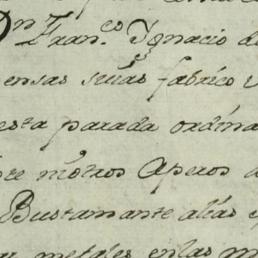 Dn Franco Ygnacio de
ensas suias fabrico
esta parada ordina
mõtros Aperos
Bustamante alias
metales enlas m